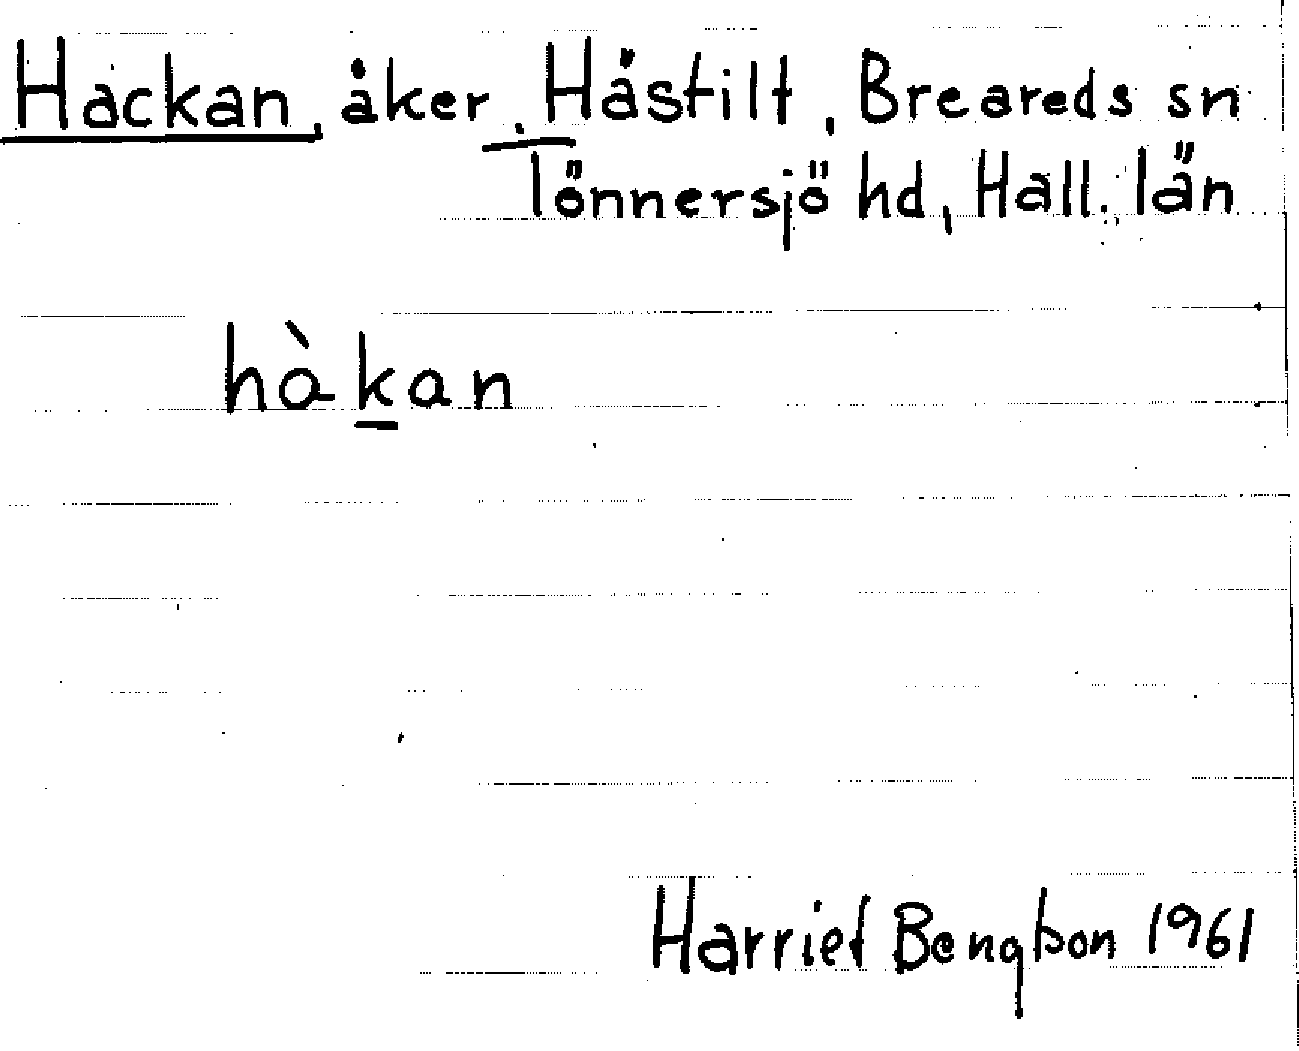 Hackan, åker, Hästilt, Breareds sn
Tönnersjö hd, Hall. län
hàk̲an
Harriet Bengtson 1961